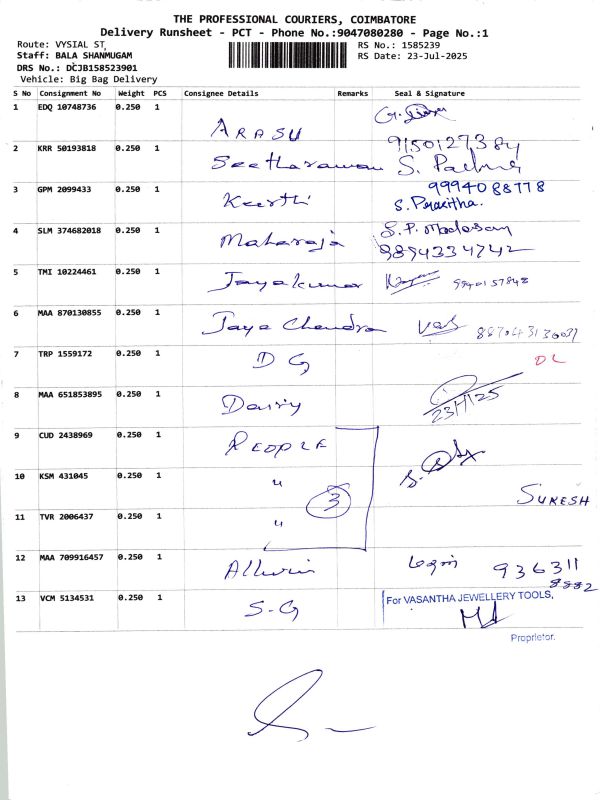 THE PROFESSIONAL COURIERS, COIMBATORE
Delivery Runsheet - PCT - Phone No.:9047080280 - Page No.:1
Route: VYSIAL ST,
Staff: BALA SHANMUGAM
DRS No.: DCJB158523901
Vehicle: Big Bag Delivery
RS No.: 1585239
RS Date: 23-Jul-2025
S No Consignment No Weight PCS Consignee Details Remarks Seal & Signature
1 EDQ 10748736 0.250 1 ARASU
2 KRR 50193818 0.250 1 Seetharaman
3 GPM 2099433 0.250 1 Keerthi 9994088778
S. Prasitha.
4 SLM 374682018 0.250 1 Maharaja
9894334742
5 TMI 10224461 0.250 1 Jayakumar 9940157848
6 MAA 870130855 0.250 1 Jaya Chandra
7 TRP 1559172 0.250 1 D G DL
8 MAA 651853895 0.250 1 Dairy 23/7/25
9 CUD 2438969 0.250 1 PEOPLE
10 KSM 431045 0.250 1 " 3 SURESH
11 TVR 2006437 0.250 1 "
12 MAA 709916457 0.250 1 Login 936311
8882
13 VCM 5134531 0.250 1 S-G For VASANTHA JEWELLERY TOOLS,
Proprietor.